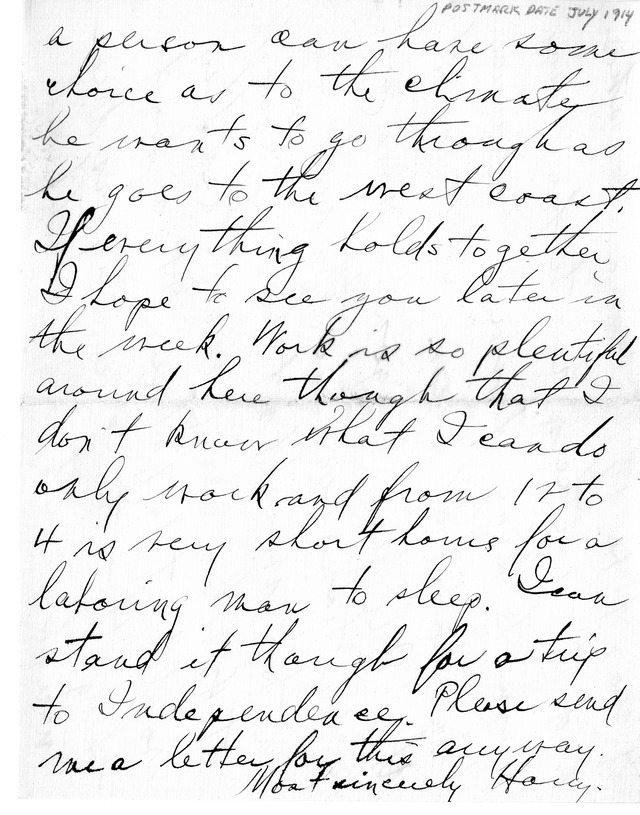 POSTMARK DATE JULY 1914
a person can have some
choice as to the climate
he wants to go through as
he goes to the west coast.
If everything holds together
I hope to see you later in
the week. Work is so plentiful
around here though that I
don't know what I can do
only work and from 12 to
4 is very short hours for a
laboring man to sleep. I can
stand it though for a trip
to Independence. Please send
me a letter for this anyway.
Most sincerely Harry.